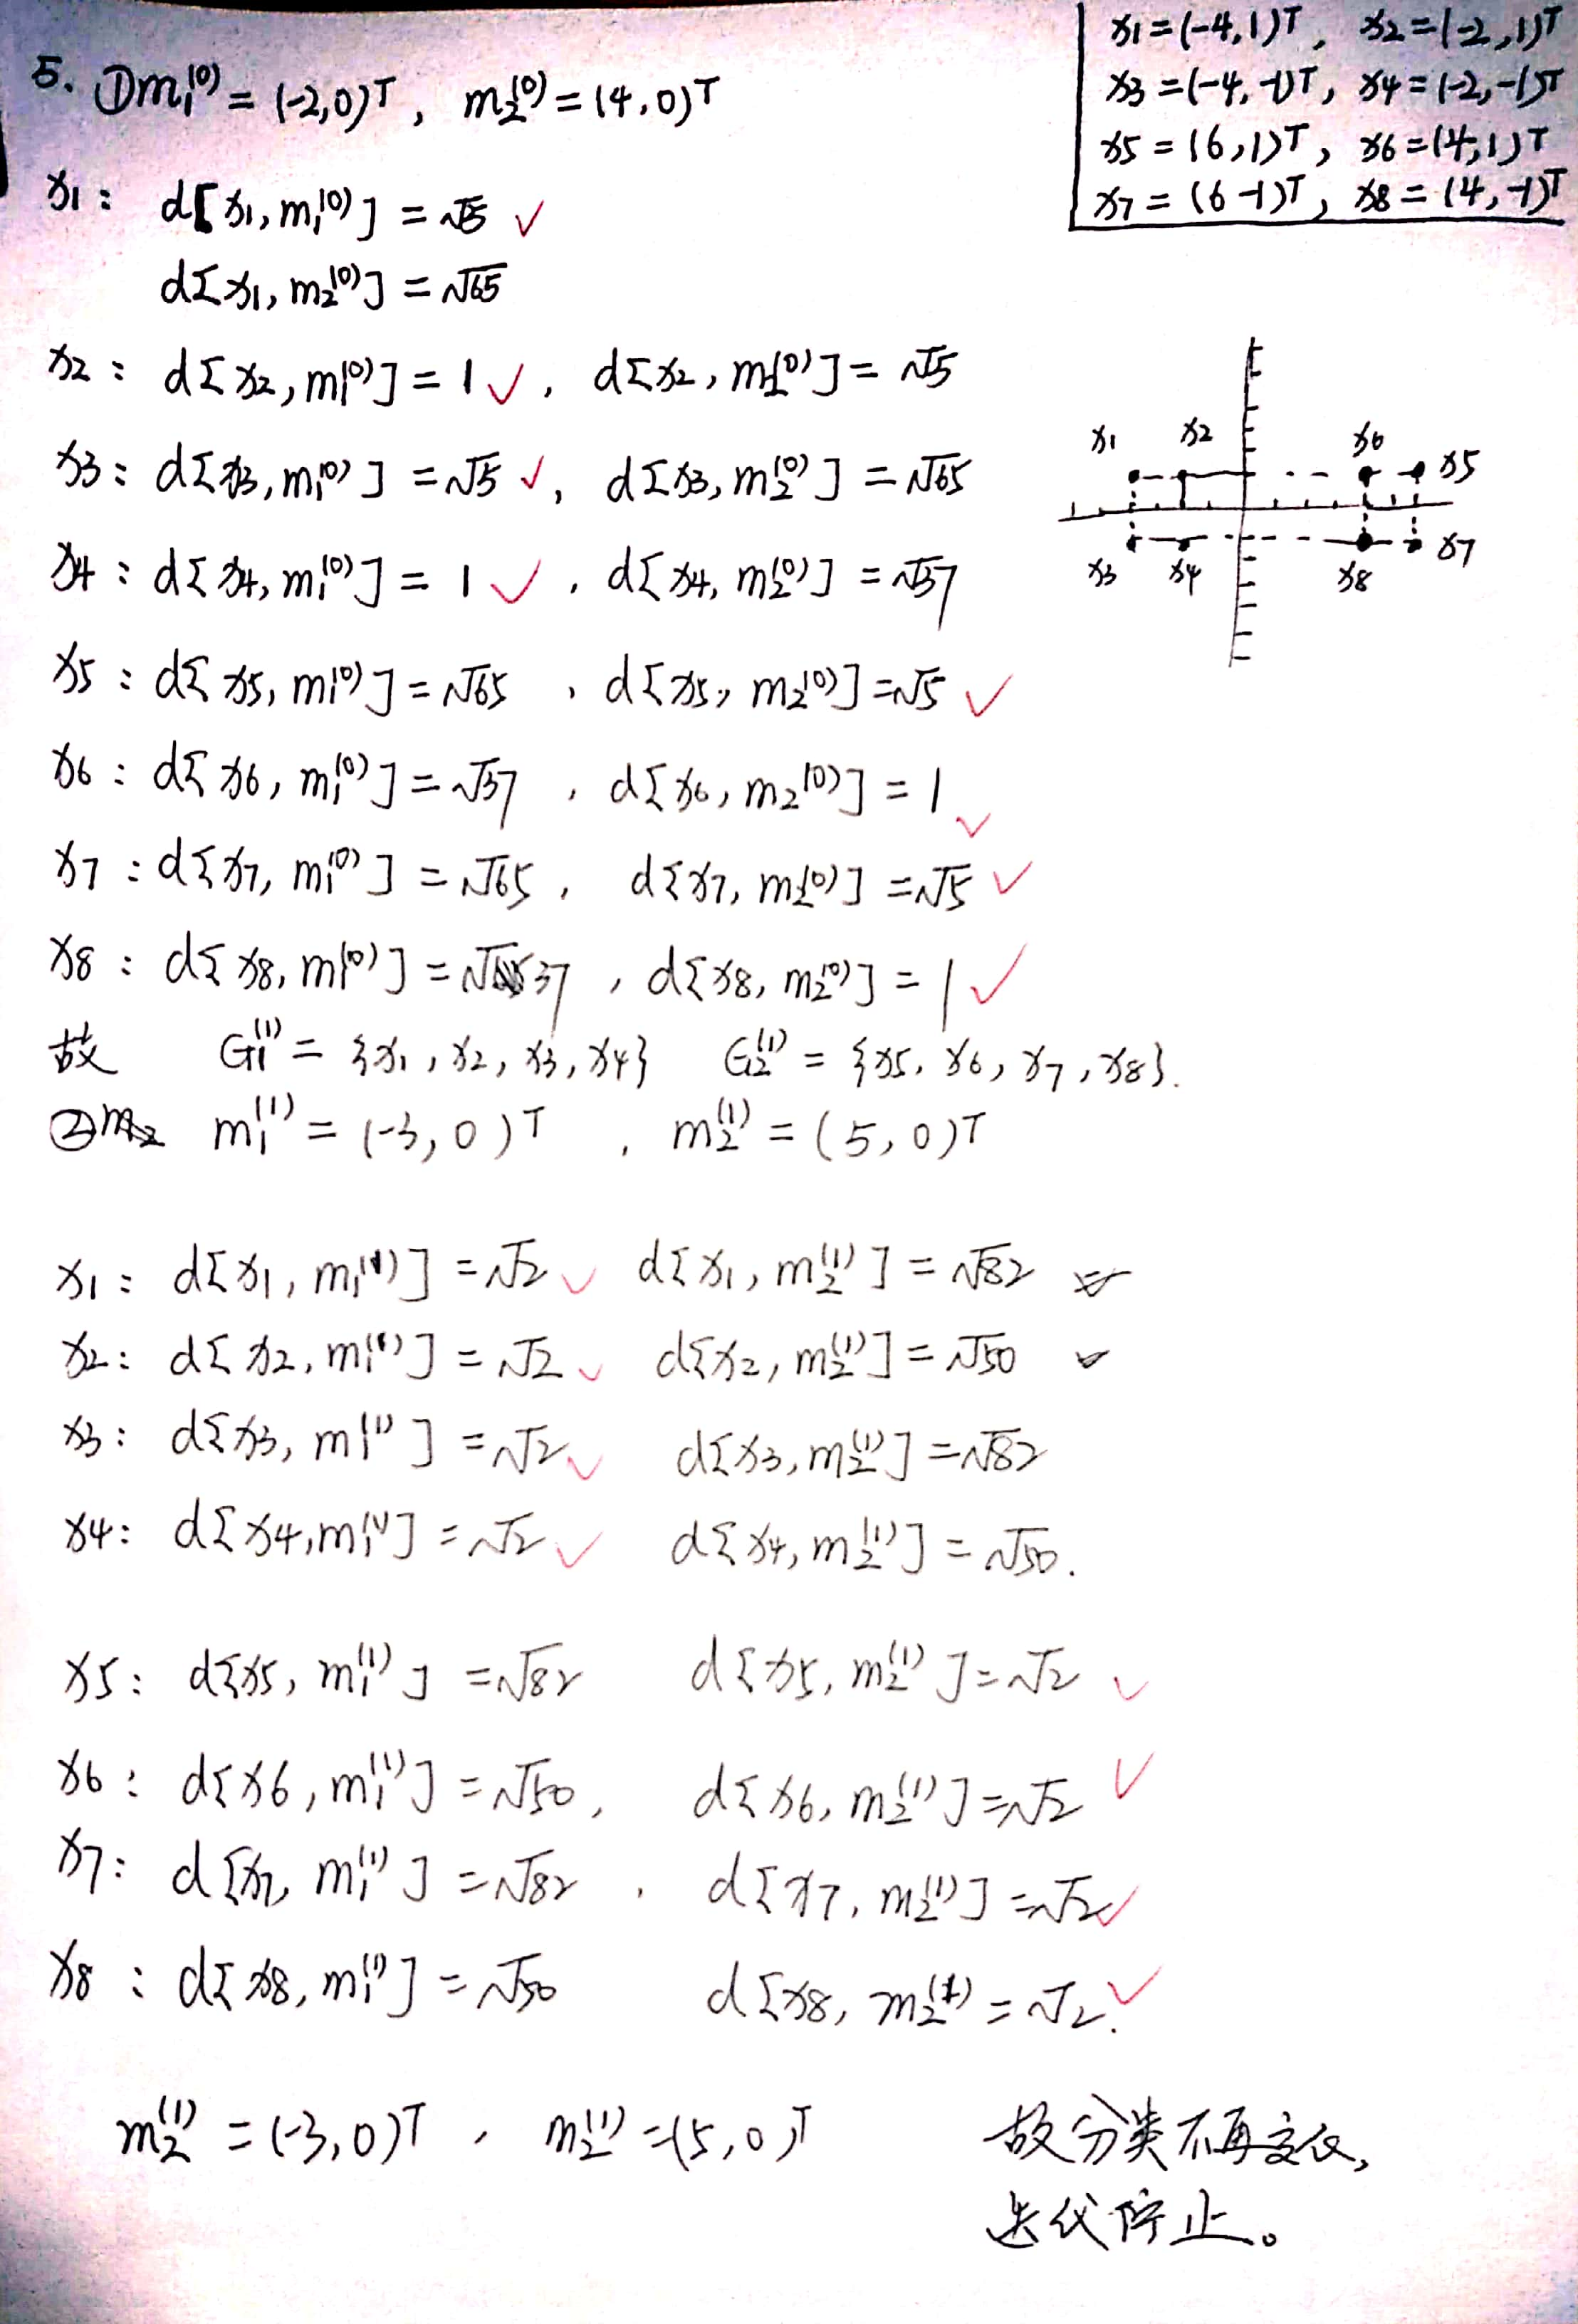 x1=(-4,1)T, x2=(-2,1)T
x3=(-4,-1)T, x4=(-2,-1)T
x5=(6,1)T, x6=(4,1)T
x7=(6 -1)T, x8=(4,-1)T
5. ①m₁⁽⁰⁾=(-2,0)T, m₂⁽⁰⁾=(4,0)T
x1: d[x1,m₁⁽⁰⁾]=√5 ✓
d[x1,m₂⁽⁰⁾]=√65
x2: d[x2,m₁⁽⁰⁾]=1 ✓, d[x2,m₂⁽⁰⁾]=√5
x3: d[x3,m₁⁽⁰⁾]=√5 ✓, d[x3,m₂⁽⁰⁾]=√65
x4: d[x4,m₁⁽⁰⁾]=1 ✓, d[x4,m₂⁽⁰⁾]=√37
x5: d[x5,m₁⁽⁰⁾]=√65, d[x5,m₂⁽⁰⁾]=√5 ✓
x6: d[x6,m₁⁽⁰⁾]=√37, d[x6,m₂⁽⁰⁾]=1 ✓
x7: d[x7,m₁⁽⁰⁾]=√65, d[x7,m₂⁽⁰⁾]=√5 ✓
x8: d[x8,m₁⁽⁰⁾]=√37, d[x8,m₂⁽⁰⁾]=1 ✓
x1 x2 x6 x5
x3 x4 x8 x7
故 G₁⁽¹⁾={x1,x2,x3,x4} G₂⁽¹⁾={x5,x6,x7,x8}.
② m₁⁽¹⁾=(-3,0)T, m₂⁽¹⁾=(5,0)T
x1: d[x1,m₁⁽¹⁾]=√2 ✓ d[x1,m₂⁽¹⁾]=√82
x2: d[x2,m₁⁽¹⁾]=√2 ✓ d[x2,m₂⁽¹⁾]=√50
x3: d[x3,m₁⁽¹⁾]=√2 ✓ d[x3,m₂⁽¹⁾]=√82
x4: d[x4,m₁⁽¹⁾]=√2 ✓ d[x4,m₂⁽¹⁾]=√50.
x5: d[x5,m₁⁽¹⁾]=√82 d[x5,m₂⁽¹⁾]=√2 ✓
x6: d[x6,m₁⁽¹⁾]=√50, d[x6,m₂⁽¹⁾]=√2 ✓
x7: d[x7,m₁⁽¹⁾]=√82, d[x7,m₂⁽¹⁾]=√2 ✓
x8: d[x8,m₁⁽¹⁾]=√50 d[x8,m₂⁽¹⁾=√2. ✓
m₂⁽¹⁾=(-3,0)T, m₂⁽¹⁾=(5,0)T 故分类不再变化,
迭代停止。